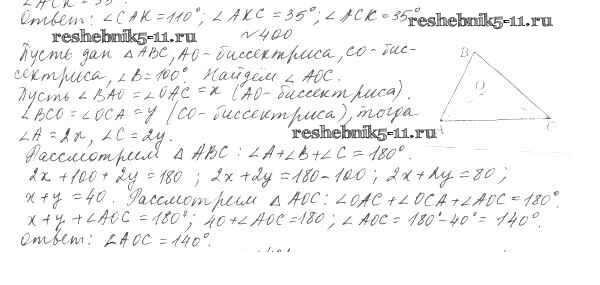 ∠ACK = 35°.
Ответ: ∠CAK = 110°; ∠AKC = 35°; ∠ACK = 35°
reshebnik5-11.ru
reshebnik5-11.ru
~ 400
Пусть дан △ABC, AO-биссектриса, CO-бис-
сектриса, ∠B = 100°. Найдём ∠AOC.
Пусть ∠BAO = ∠OAC = x (AO-биссектриса).
∠BCO = ∠OCA = y (CO-биссектриса), тогда
∠A = 2x, ∠C = 2y.
reshebnik5-11.ru
B
O
A
C
Рассмотрим △ABC: ∠A + ∠B + ∠C = 180°.
2x + 100 + 2y = 180 ; 2x + 2y = 180 - 100 ; 2x + 2y = 80 ;
x + y = 40. Рассмотрим △AOC: ∠OAC + ∠OCA + ∠AOC = 180°.
x + y + ∠AOC = 180°; 40 + ∠AOC = 180 ; ∠AOC = 180° - 40° = 140°.
Ответ: ∠AOC = 140°.